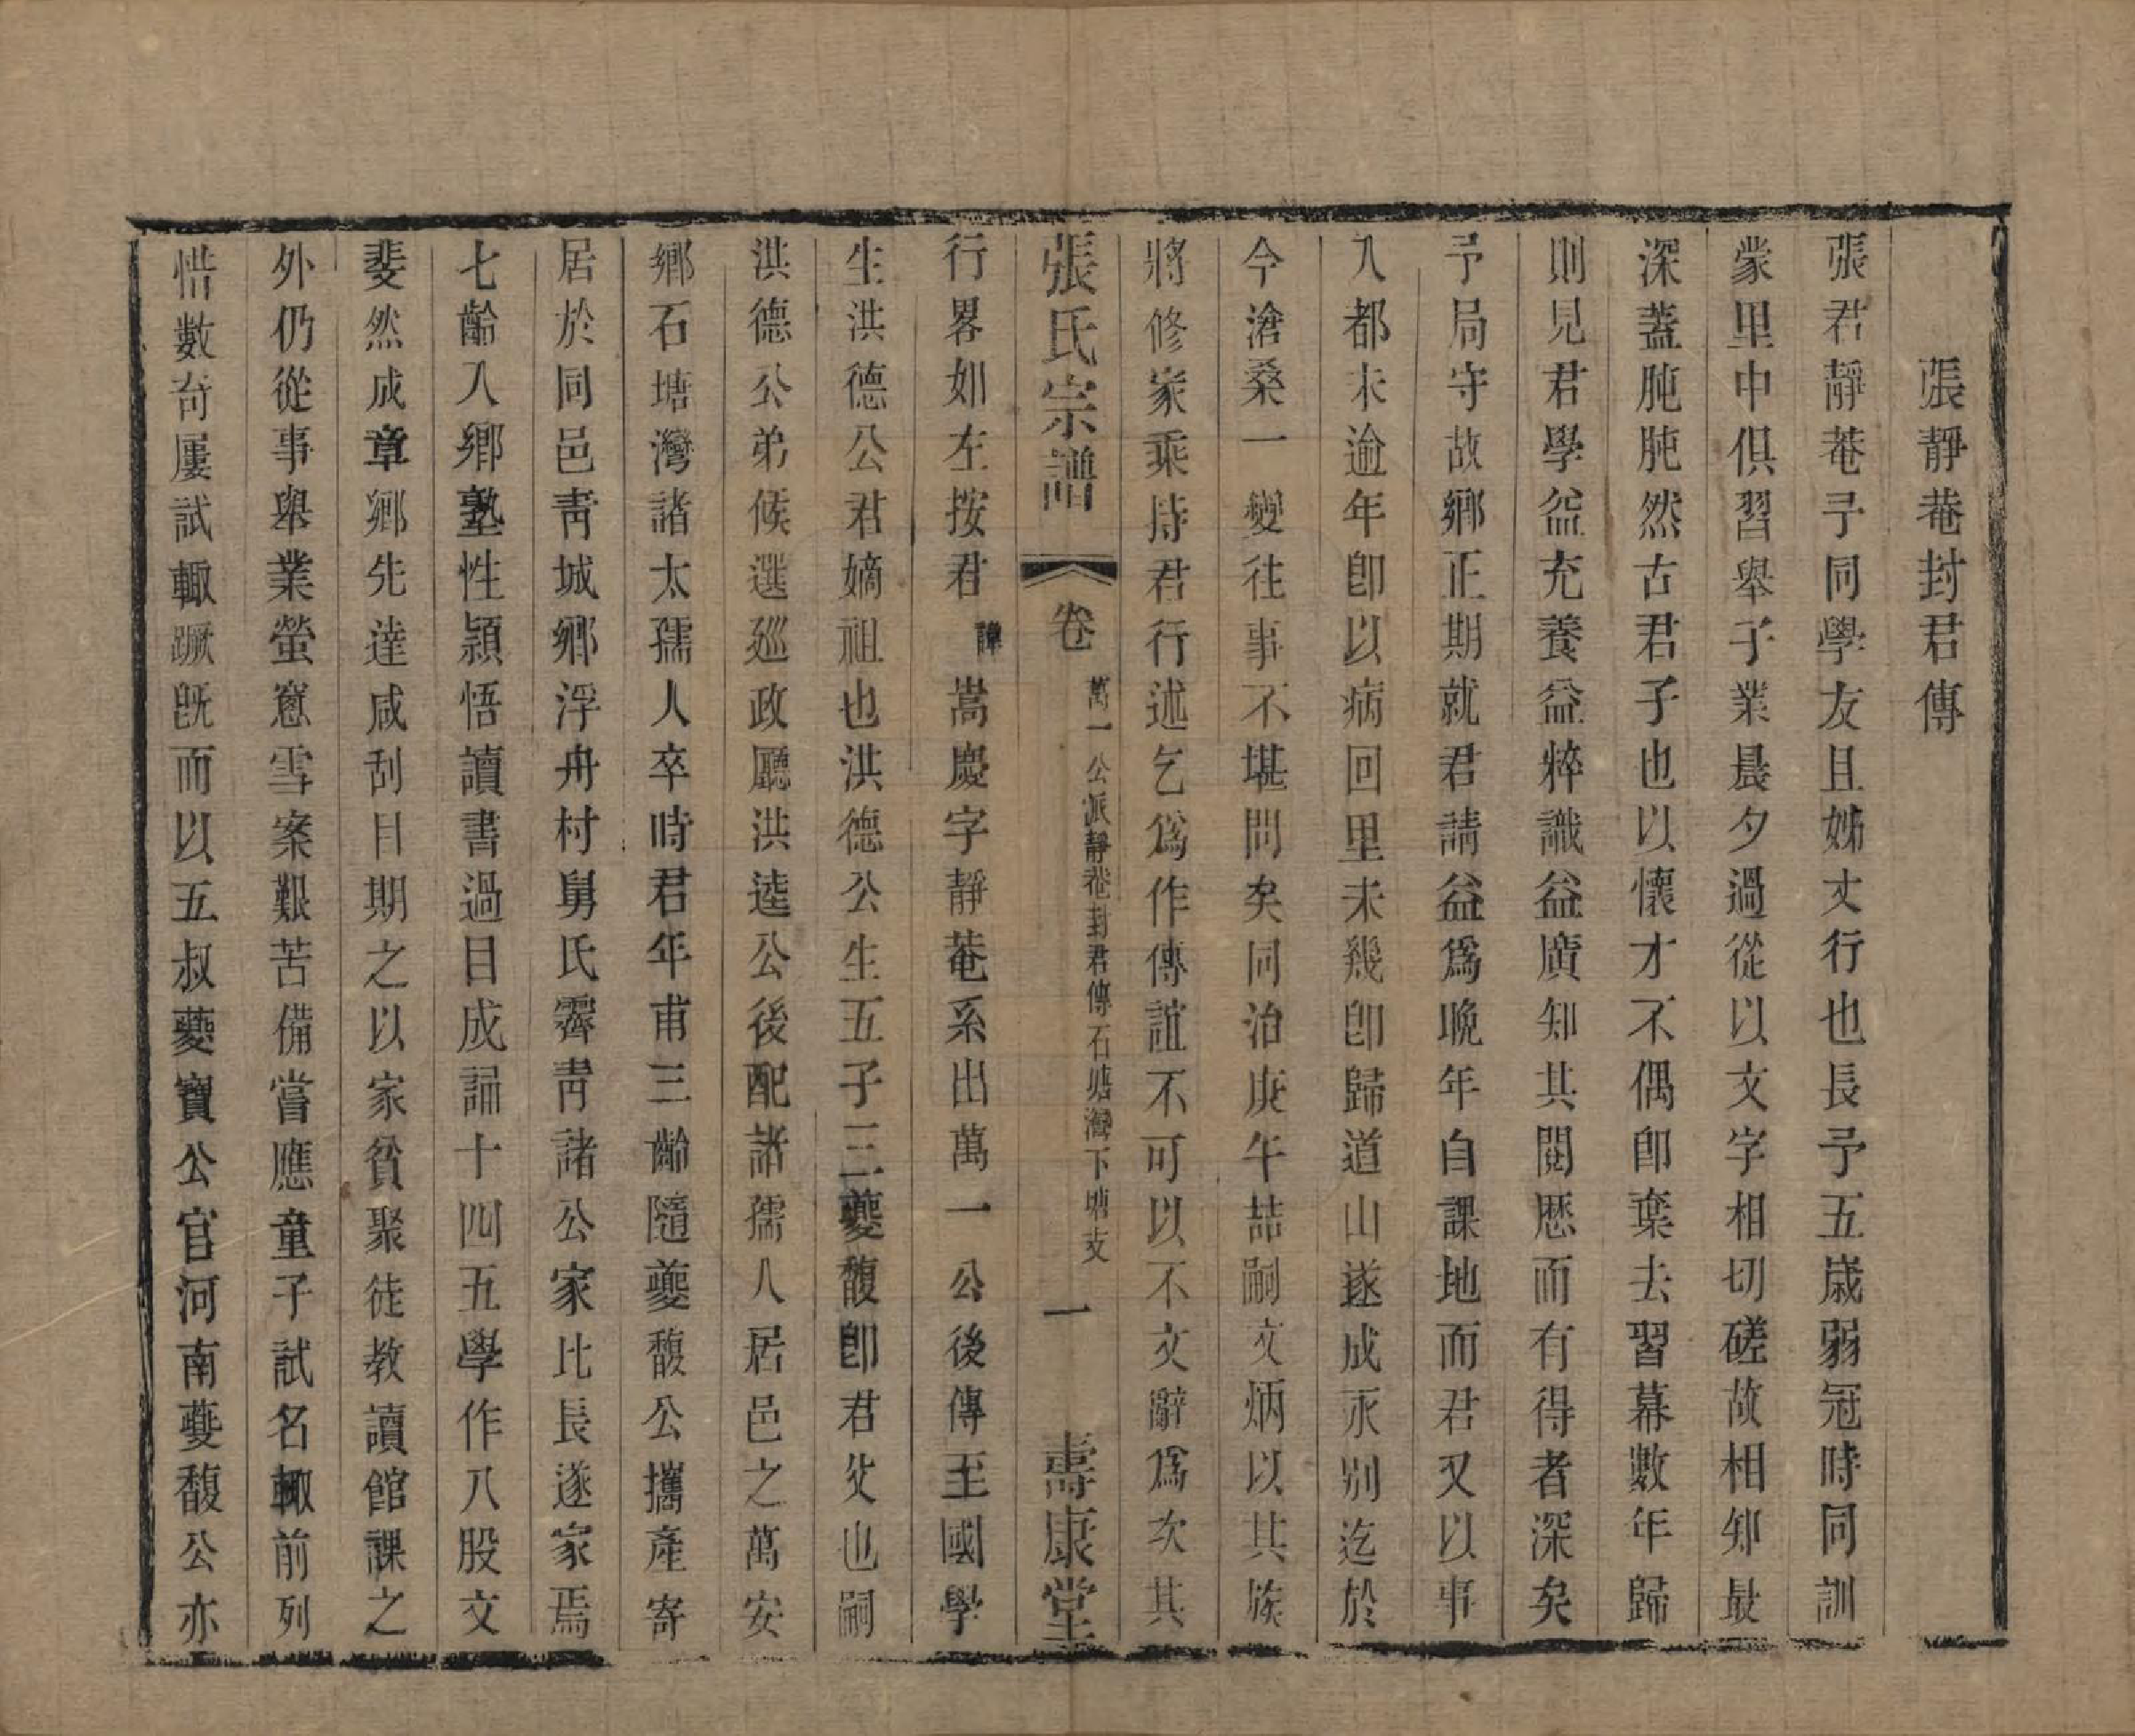 張靜菴封君傳
張君靜菴予同學友且姊丈行也長予五歲弱冠時同訓
蒙里中俱習舉子業晨夕過從以文字相切磋故相知最
深蓋肫肫然古君子也以懷才不偶卽棄去習幕數年歸
則見君學益充養益粹識益廣知其閱歷而有得者深矣
予局守故鄉正期就君請益爲晚年自課地而君又以事
入都未逾年卽以病回里未幾卽歸道山遂成永别迄於
今滄桑一變往事不堪問矣同治庚午喆嗣文炳以其族
將修家乘持君行述乞爲作傳誼不可以不文辭爲次其
張氏宗譜 卷 萬一公派靜菴封君傳石塘灣下塘支 一 壽康堂
行畧如左按君諱嵩慶字靜菴系出萬一公後傳至國學
生洪德公君嫡祖也洪德公生五子三夔馥卽君父也嗣
洪德公弟候選巡政廳洪逵公後配諸孺人居邑之萬安
鄉石塘灣諸太孺人卒時君年甫三齡隨夔馥公攜產寄
居於同邑青城鄉浮舟村舅氏霽青諸公家比長遂家焉
七齡入鄉塾性穎悟讀書過目成誦十四五學作八股文
斐然成章鄉先達咸刮目期之以家貧聚徒教讀館課之
外仍從事舉業螢窻雪案艱苦備嘗應童子試名輒前列
惜數奇屢試輒蹶旣而以五叔夔寶公官河南夔馥公亦